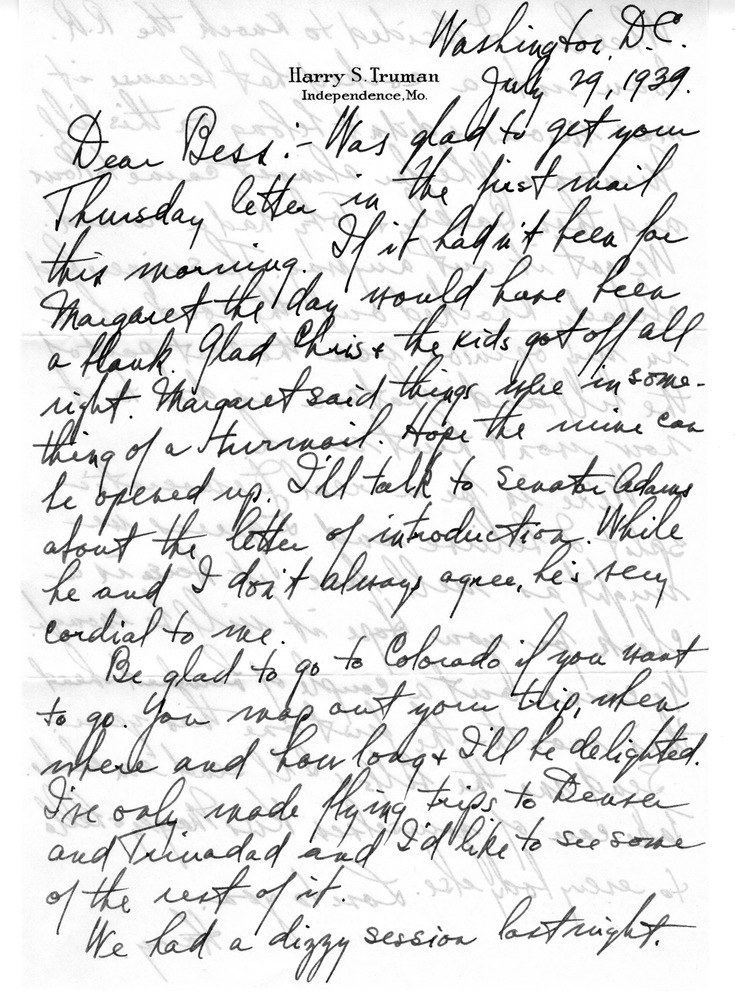 Washington, D.C.
Harry S. Truman
Independence, Mo.
July 29, 1939.
Dear Bess:- Was glad to get your
Thursday letter in the first mail
this morning. If it hadn't been for
Margaret the day would have been
a blank. Glad Chris & the kids got off all
right. Margaret said things were in some-
thing of a turmoil. Hope the mine can
be opened up. I'll talk to Senator Adams
about the letter of introduction. While
he and I don't always agree, he's very
cordial to me.
Be glad to go to Colorado if you want
to go. You map out your trip, when
where and how long & I'll be delighted.
I've only made flying trips to Denver
and Trinadad and I'd like to see some
of the rest of it.
We had a dizzy session last night.